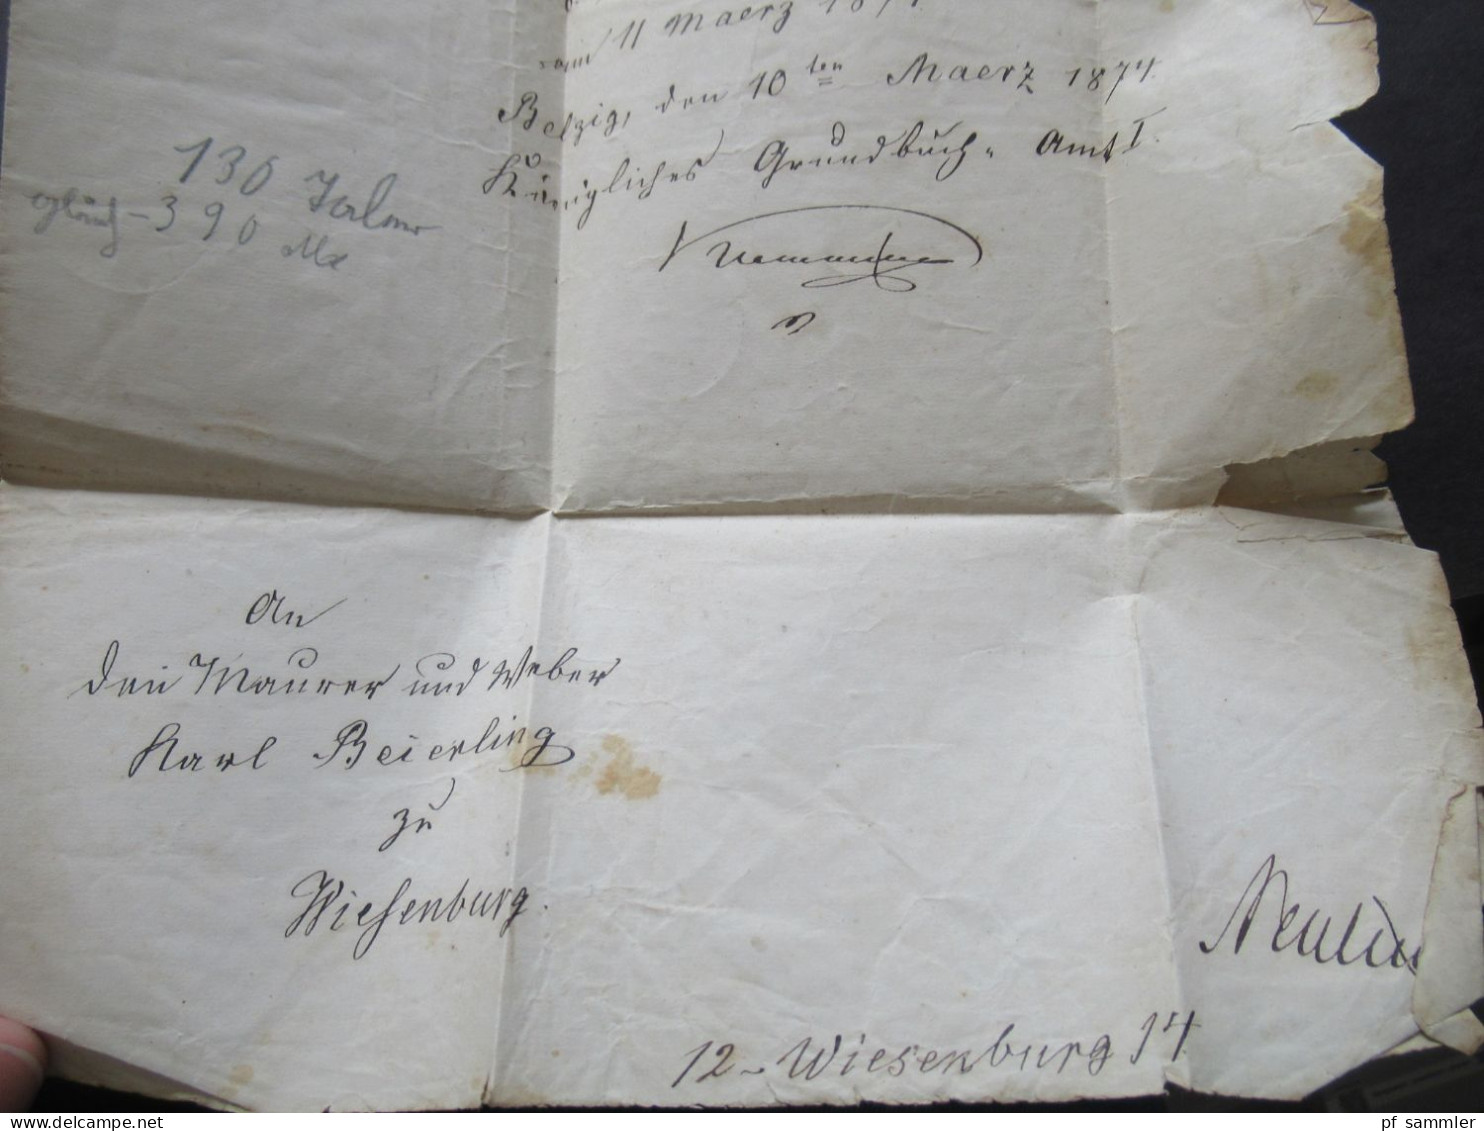 am 11 Maerz 187
Belzig, den 10ten Maerz 1874.
Königliches Grundbuch-Amt I.
130 Taler
gleich - 390 Mk
An
den Maurer und Weber
Karl Beierling
zu
Wiesenburg.
12 - Wiesenburg 14
pf sammler